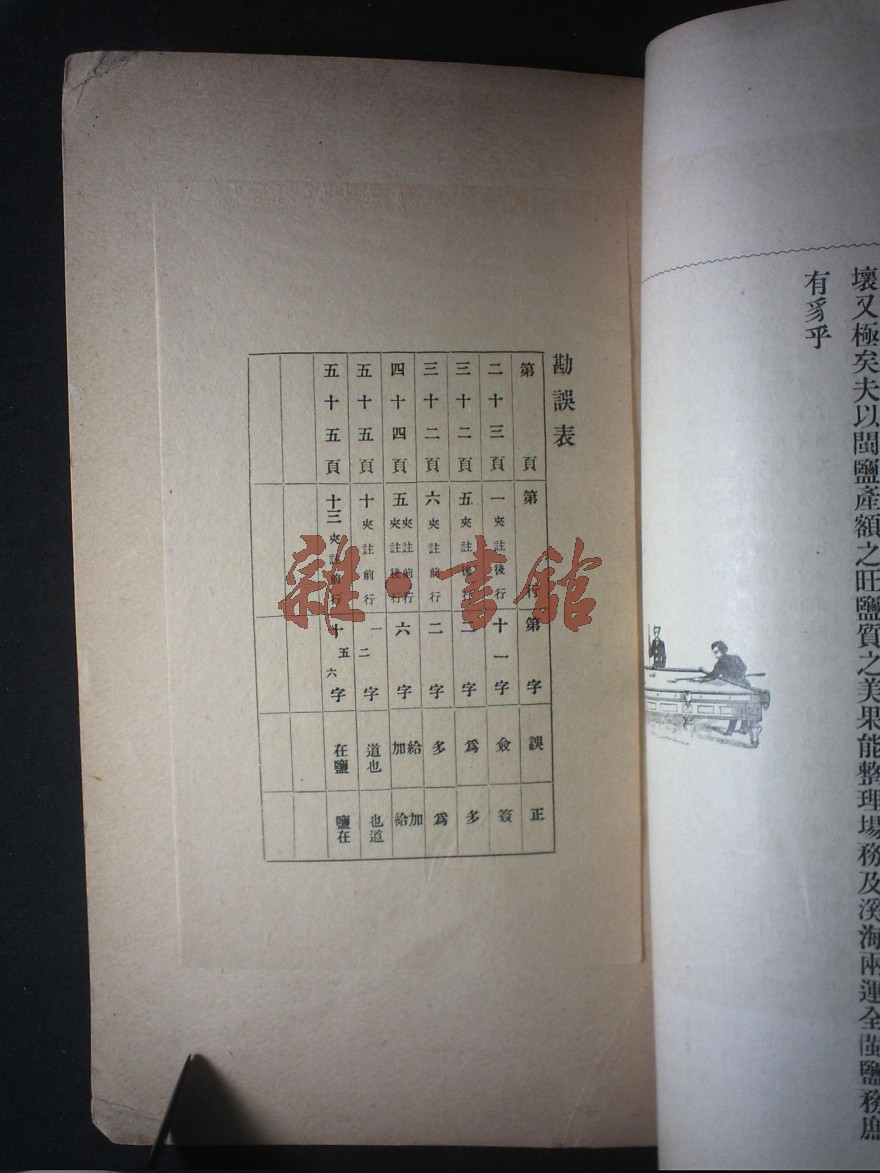 壞又極矣夫以閩鹽產額之旺鹽質之美果能整理場務及溪海兩運全閩鹽務庶
有豸乎
勘誤表
第頁 第行 第字 誤 正
二十三頁 一夾註後行 十一字 僉 簽
三十二頁 五夾註後行 二字 爲 多
三十二頁 六夾註前行 二字 多 爲
四十四頁 五夾註前行夾註後行 六字 給加 加給
五十五頁 十夾註前行 一二字 道也 也道
五十五頁 十三夾註前行 十五六字 在鹽 鹽在
雜·書館